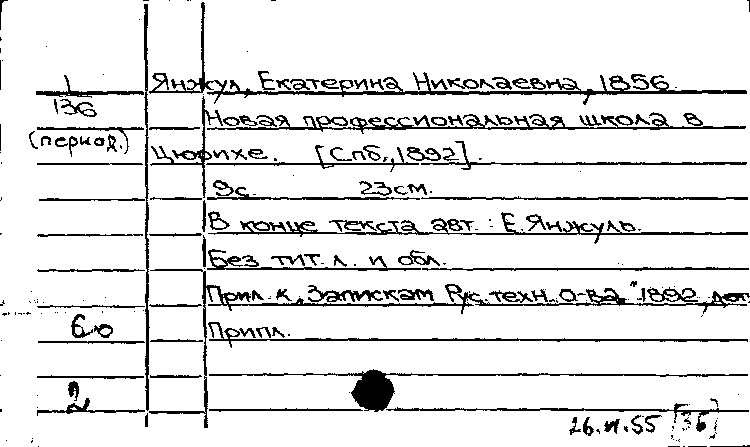 1
136
(период.)
Янжул, Екатерина Николаевна, 1856.
Новая профессиональная школа в
Цюрихе. [Спб., 1892].
9с. 23см.
В конце текста авт.: Е. Янжуль.
Без тит. л. и обл.
Прил. к „Запискам Рус. техн. о-ва," 1892,
Припл.
60
2
26.VI.55 [36]